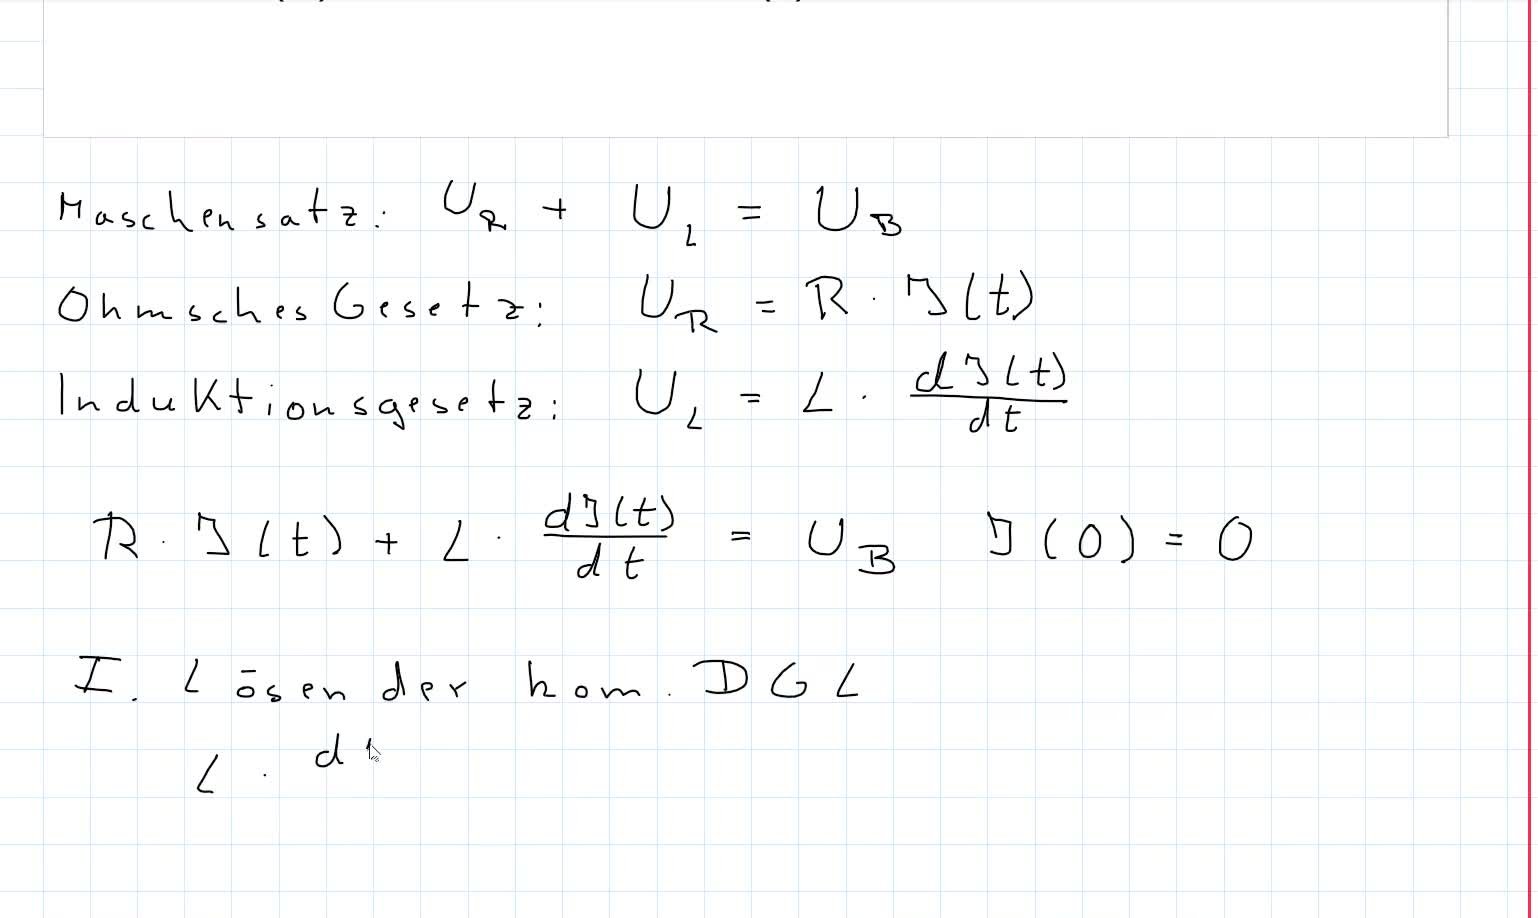 Maschensatz: U_R + U_L = U_B
Ohmsches Gesetz: U_R = R · I(t)
Induktionsgesetz: U_L = L · dI(t)/dt
R · I(t) + L · dI(t)/dt = U_B I(0) = 0
I. Lösen der hom. DGL
L · d